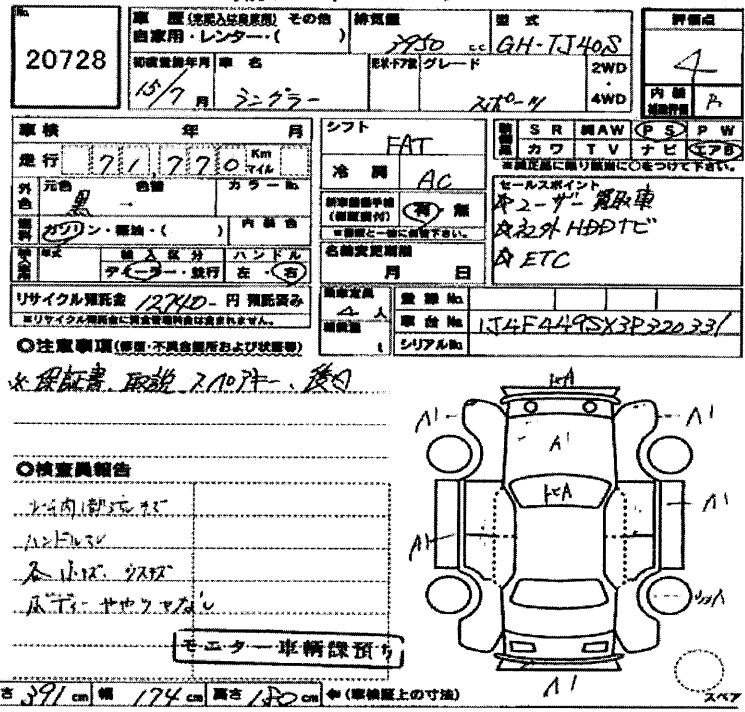 No.
20728
車歴(未記入は自家用) その他
自家用・レンター・( )
排気量
3950 cc
型式
GH-TJ40S
評価点
4
初度登録年月
15/7 月
車名
ラングラー
形状・ドア数
グレード
スポーツ
2WD
・
4WD
内装
B
車検 年 月
走行 71,770 Km
マイル
シフト
FAT
冷房
AC
S R 純AW P S P W
カワ T V ナビ エアB
※純正品に限り該当に○をつけて下さい。
外色
元色
黒
→
色替
カラーNo.
燃料
ガソリン・軽油・( )
内装色
新車整備手帳
(保証書付)
有・無
セールスポイント
☆ユーザー買取車
☆社外HDDナビ
☆ETC
年式
輸入区分
ディーラー・並行
ハンドル
左・右
名義変更期限
月 日
リサイクル預託金 12740- 円 預託済み
※リサイクル預託金に資金管理料金は含まれません。
乗車定員
4 人
積載量
t
登録No.
車台No. 1J4F449SX3P320331
シリアルNo.
◎注意事項(修復・不具合箇所および状態等)
※保証書、取説、スペアキー、後日
◎検査員報告
ハンドルスレ
各小キズ、ウスキズ
ボディーややツヤなし
モニター車輌課預り
トビA
A1
A1
A1
トビA
A1
A1
A1
スペア
さ 391 cm 幅 174 cm 高さ 180 cm ⇦(車検証上の寸法)